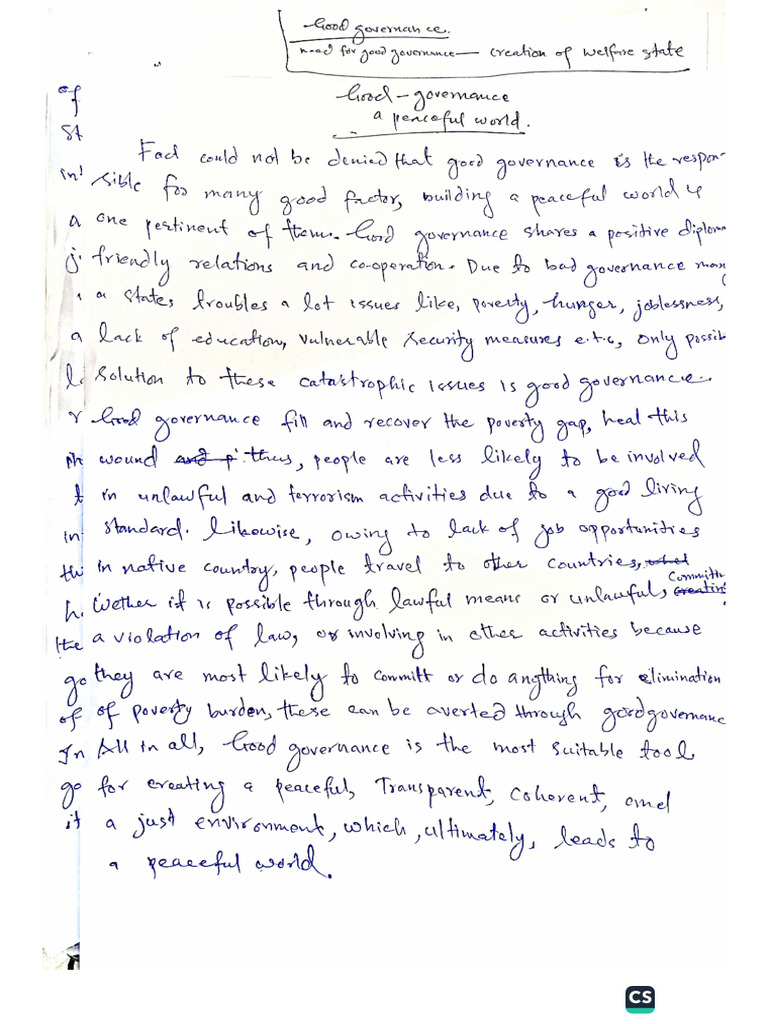 Good governance.
need for good governance — creation of welfare state
Good - governance
a peaceful world.
of
St
Fact could not be denied that good governance is the respon-
in' sible for many good factor, building a peaceful world is
a one pertinent of them. Good governance shares a positive diplom
j. friendly relations and co-operation. Due to bad governance man
a states troubles a lot issues like, poverty, hunger, joblessness,
a lack of education, vulnerable security measures e.t.c, only possib
l. solution to these catastrophic issues is good governance.
r Good governance fill and recover the poverty gap, heal this
ph wound and p thus, people are less likely to be involved
t in unlawful and terrorism activities due to a good living
in standard. Likowise, owing to lack of job opportunities
th in native country, people travel to other countries, what
committ
h. Wether it is possible through lawful means or unlawful, creatin
the a violation of law, or involving in other activities because
go they are most likely to committ or do angthing for elimination
of of poverty burden, these can be averted through good governance
In All in all, Good governance is the most suitable tool
go for creating a peaceful, Transparent, coherent, and
it a just environment, which, ultimately, leads to
a peaceful world.
CS